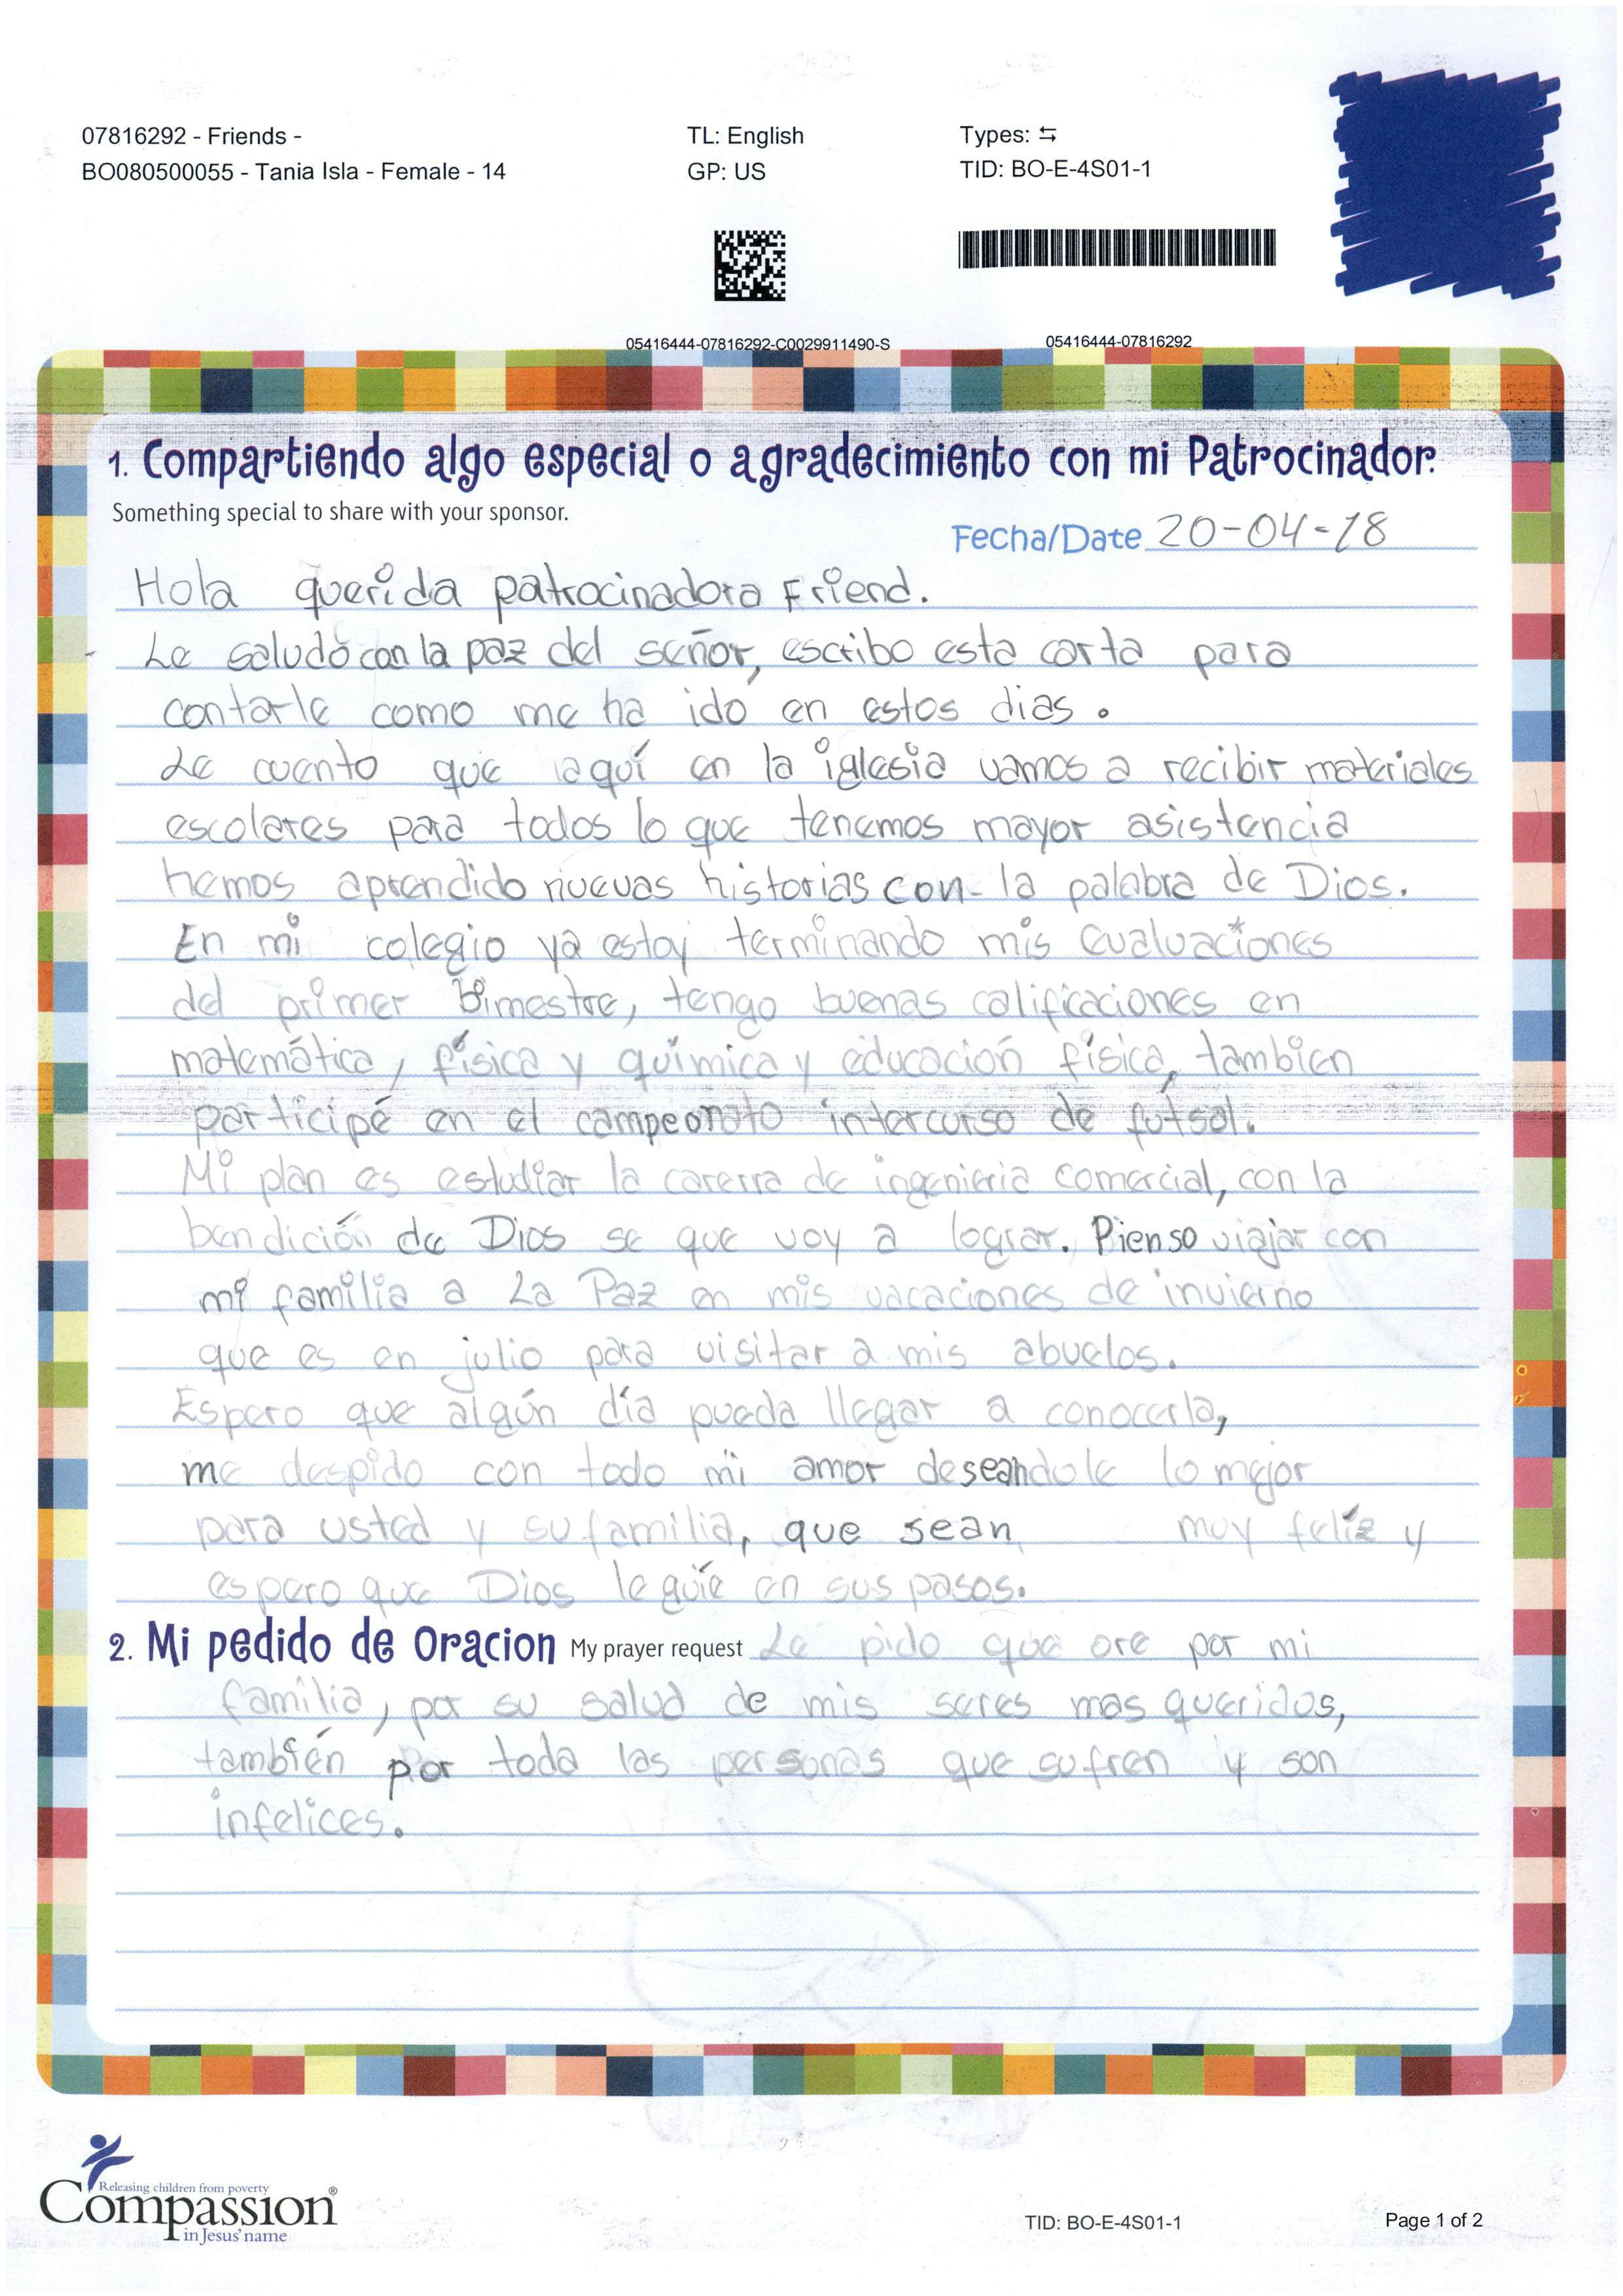 07816292 - Friends -
BO080500055 - Tania Isla - Female - 14
TL: English
GP: US
Types: ⇆
TID: BO-E-4S01-1
05416444-07816292-C0029911490-S
05416444-07816292
1. Compartiendo algo especial o agradecimiento con mi Patrocinador.
Something special to share with your sponsor.
Fecha/Date 20-04-18
Hola querida patrocinadora Friend.
Le saludó con la paz del señor, escribo esta carta para
contarle como me ha ido en estos dias.
Le cuento que aquí en la iglesia vamos a recibir materiales
escolares para todos lo que tenemos mayor asistencia
hemos aprendido nuevas historias con la palabra de Dios.
En mi colegio ya estoy terminando mis evaluaciones
del primer bimestre, tengo buenas calificaciones en
matemática, física y química y educación física, tambien
participé en el campeonato intercurso de futsal.
Mi plan es estudiar la carerra de ingenieria comercial, con la
bendición de Dios se que voy a lograr. Pienso viajar con
mi familia a La Paz en mis vacaciones de invierno
que es en julio para visitar a mis abuelos.
Espero que algún día pueda llegar a conocerla,
me despido con todo mi amor deseandole lo mejor
para usted y su familia, que sean muy felíz y
espero que Dios le guíe en sus pasos.
2. Mi pedido de Oracion My prayer request Le pido que ore por mi
familia, por su salud de mis seres mas queridos,
también por toda las personas que sufren y son
infelices.
Releasing children from poverty
Compassion®
in Jesus' name
TID: BO-E-4S01-1
Page 1 of 2